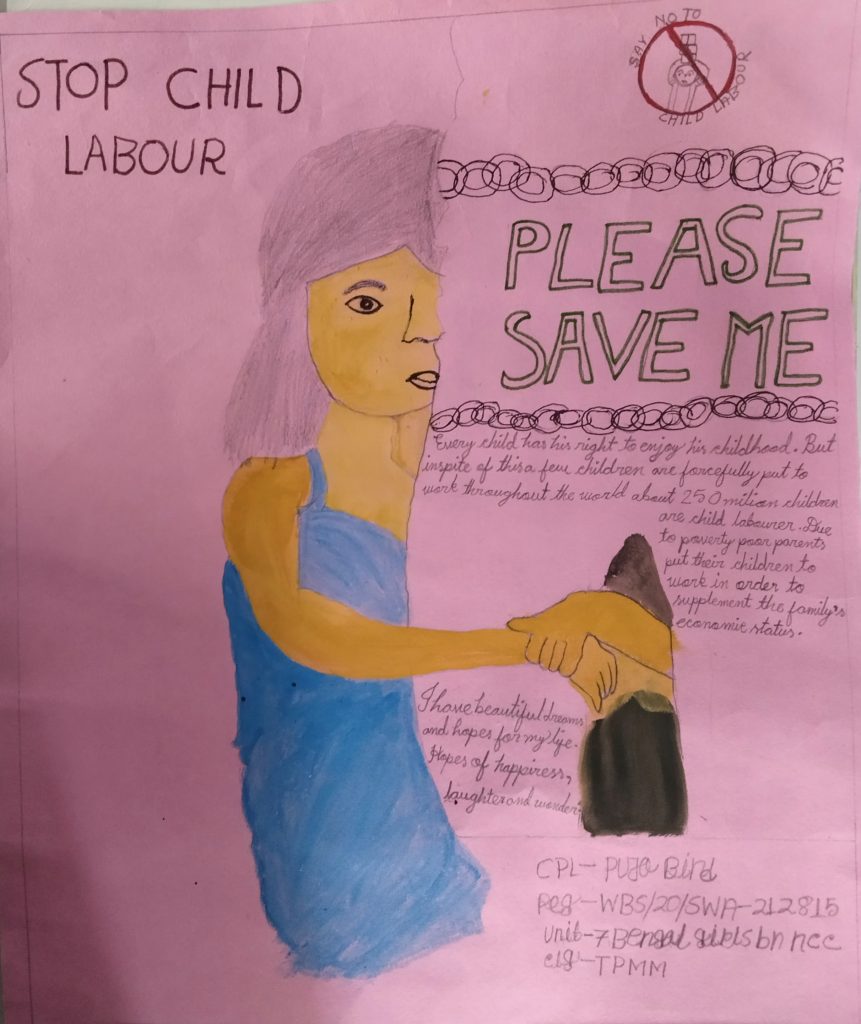 STOP CHILD
LABOUR
SAY NO TO
CHILD LABOUR
PLEASE
SAVE ME
Every child has his right to enjoy his childhood. But
inspite of this a few children are forcefully put to
work throughout the world about 250 milian children
are child labourer. Due
to poverty poor parents
put their children to
work in order to
supplement the family's
economic status.
I have beautiful dreams
and hopes for my life.
Hopes of happiness,
laughter and wonder,
CPL- Puja Bind
Reg-WBS/20/SWA-212815
unit-7 Bengal girls bn ncc
clg-TPMM